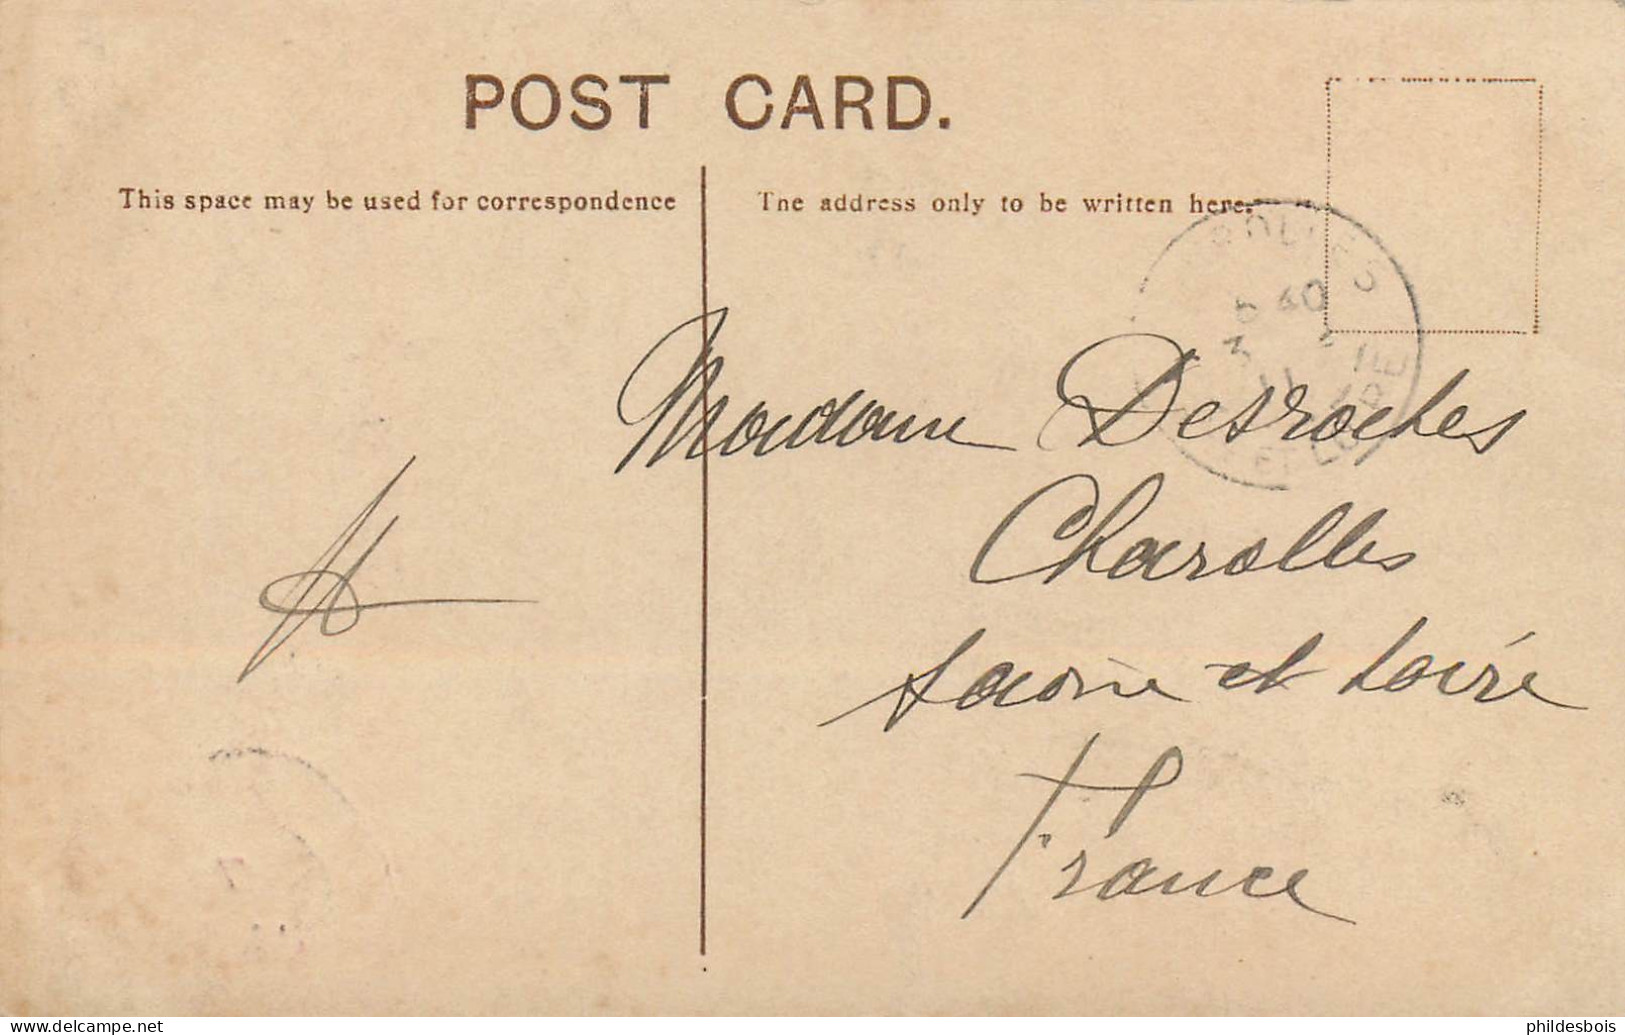 POST CARD.
This space may be used for correspondence
The address only to be written here.
Madame Desroches
Charolles
Saone et Loire
France
Website : www.delcampe.net
phildesbois